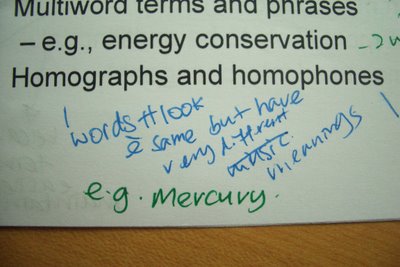 Multiword terms and phrases
– e.g., energy conservation → w
Homographs and homophones
words # look
è same but have
very different
music
meanings
e.g. Mercury.